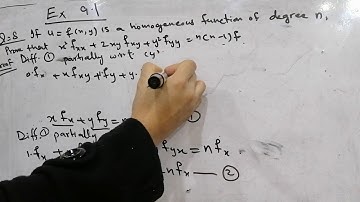 Ex 9.1
Q.8 If u = f(x,y) is a homogeneous function of degree n,
Prove that x² fxx + 2xy fxy + y² fyy = n(n-1)f.
Diff. ① partially w.r.t "y"
0.f + x fxy + 1.fy + y.
x fx + y fy = ①
Diff. ① partially
1.fx + fyx = n fx
n fx — ②